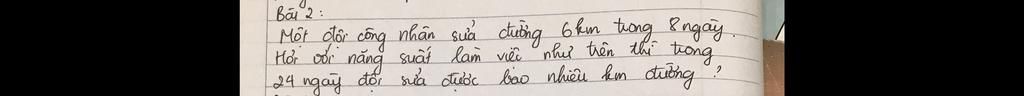 Bài 2:
Một đội công nhân sửa đường 6km trong 8 ngày.
Hỏi với năng suất làm việc như trên thì trong
24 ngày đội sửa được bao nhiêu km đường?